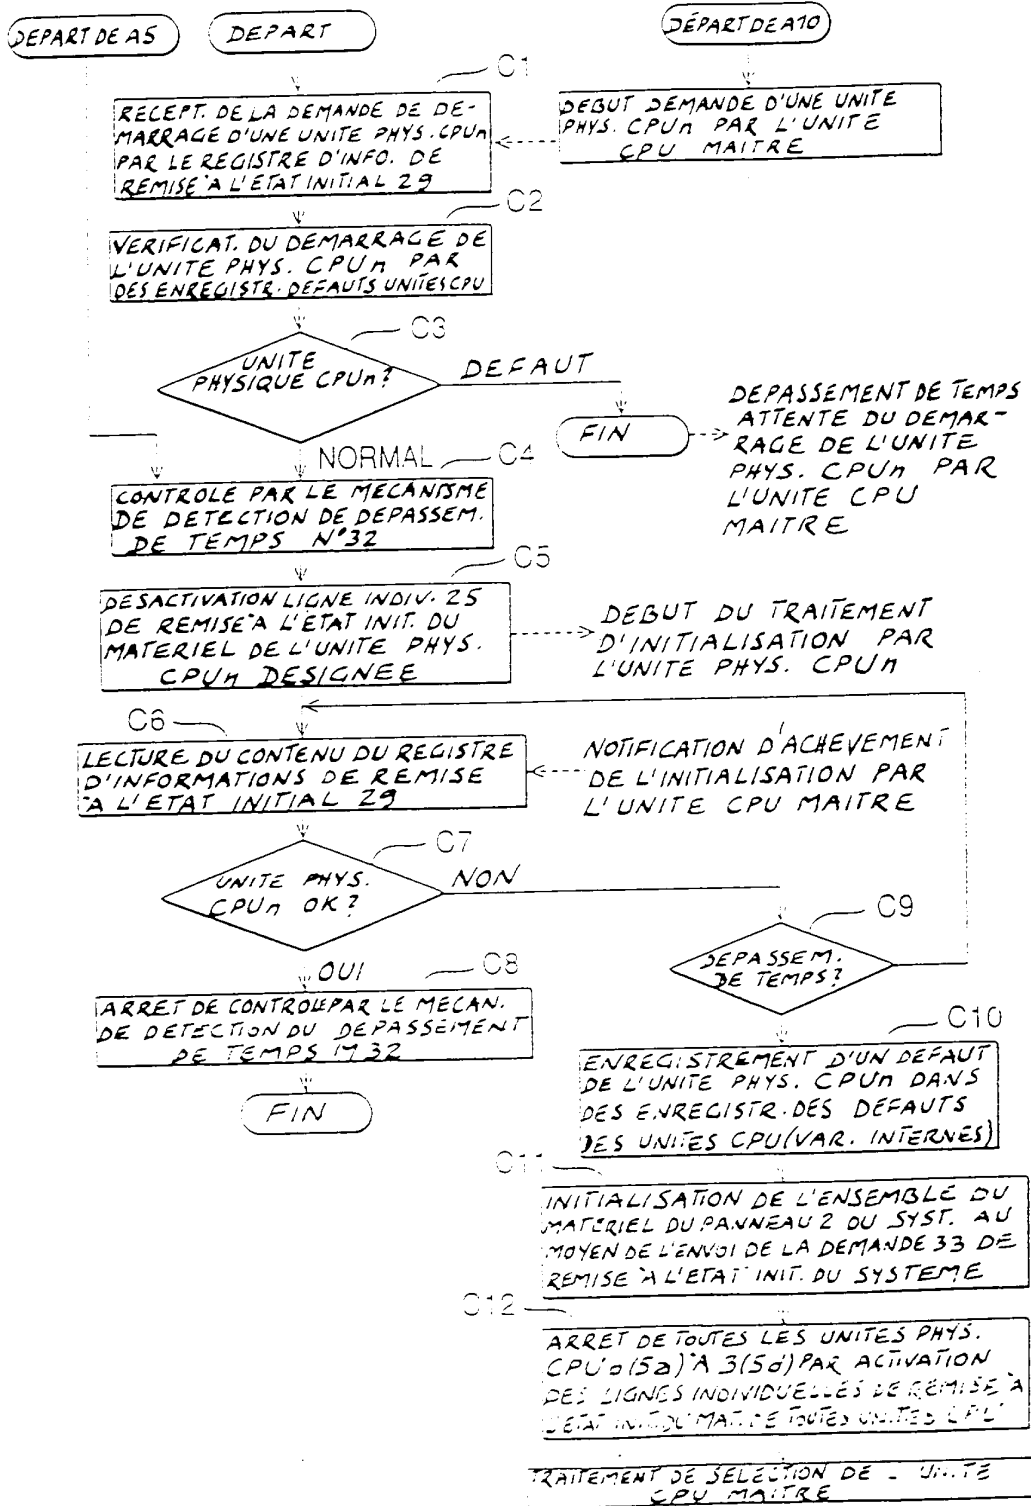 DEPART DE A5
DEPART
DÉPART DE A10
C1
RECEPT. DE LA DEMANDE DE DE-
MARRAGE D'UNE UNITE PHYS. CPUn
PAR LE REGISTRE D'INFO. DE
REMISE A L'ETAT INITIAL 29
DEBUT DEMANDE D'UNE UNITE
PHYS. CPUn PAR L'UNITE
CPU MAITRE
C2
VERIFICAT. DU DEMARRAGE DE
L'UNITE PHYS. CPUn PAR
DES ENREGISTR. DEFAUTS UNITES CPU
C3
UNITE
PHYSIQUE CPUn?
DEFAUT
FIN
DEPASSEMENT DE TEMPS
ATTENTE DU DEMAR-
RAGE DE L'UNITE
PHYS. CPUn PAR
L'UNITE CPU
MAITRE
NORMAL
C4
CONTROLE PAR LE MECANISME
DE DETECTION DE DEPASSEM.
DE TEMPS N°32
C5
DESACTIVATION LIGNE INDIV. 25
DE REMISE A L'ETAT INIT. DU
MATERIEL DE L'UNITE PHYS.
CPUn DESIGNEE
DEBUT DU TRAITEMENT
D'INITIALISATION PAR
L'UNITE PHYS. CPUn
C6
LECTURE DU CONTENU DU REGISTRE
D'INFORMATIONS DE REMISE
A L'ETAT INITIAL 29
NOTIFICATION D'ACHEVEMENT
DE L'INITIALISATION PAR
L'UNITE CPU MAITRE
C7
UNITE PHYS.
CPUn OK?
NON
C9
DEPASSEM.
DE TEMPS?
OUI
C8
ARRET DE CONTROLE PAR LE MECAN.
DE DETECTION DU DEPASSEMENT
DE TEMPS 32
FIN
C10
ENREGISTREMENT D'UN DEFAUT
DE L'UNITE PHYS. CPUn DANS
DES ENREGISTR. DES DEFAUTS
DES UNITES CPU (VAR. INTERNES)
C11
INITIALISATION DE L'ENSEMBLE DU
MATERIEL DU PANNEAU 2 DU SYST. AU
MOYEN DE L'ENVOI DE LA DEMANDE 33 DE
REMISE A L'ETAT INIT. DU SYSTEME
C12
ARRET DE TOUTES LES UNITES PHYS.
CPU 0(5a) A 3(5d) PAR ACTIVATION
DES LIGNES INDIVIDUELLES DE REMISE A
L'ETAT INIT. DU MAT. DE TOUTES UNITES CPU
TRAITEMENT DE SELECTION DE UNITE
CPU MAITRE